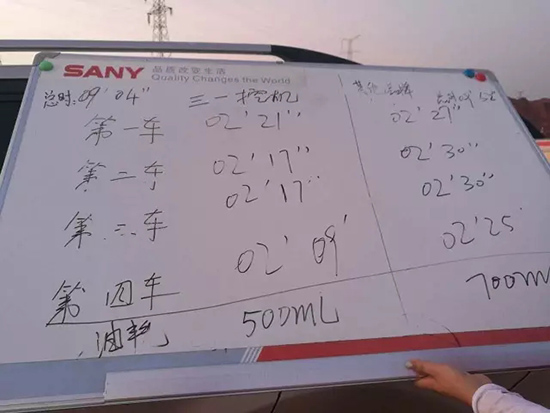 SANY 品质改变生活
Quality Changes the World
总时:09'04" 三一挖机 其他品牌 总时09'52
第一车 02'21" 02'27"
第二车 02'17" 02'30"
第三车 02'17" 02'30"
第四车 02'09' 02'25
油耗 500mL 700m